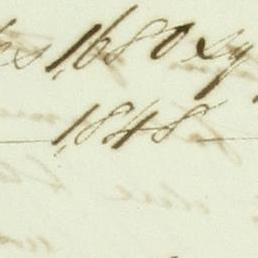 1,680 sq
1,848